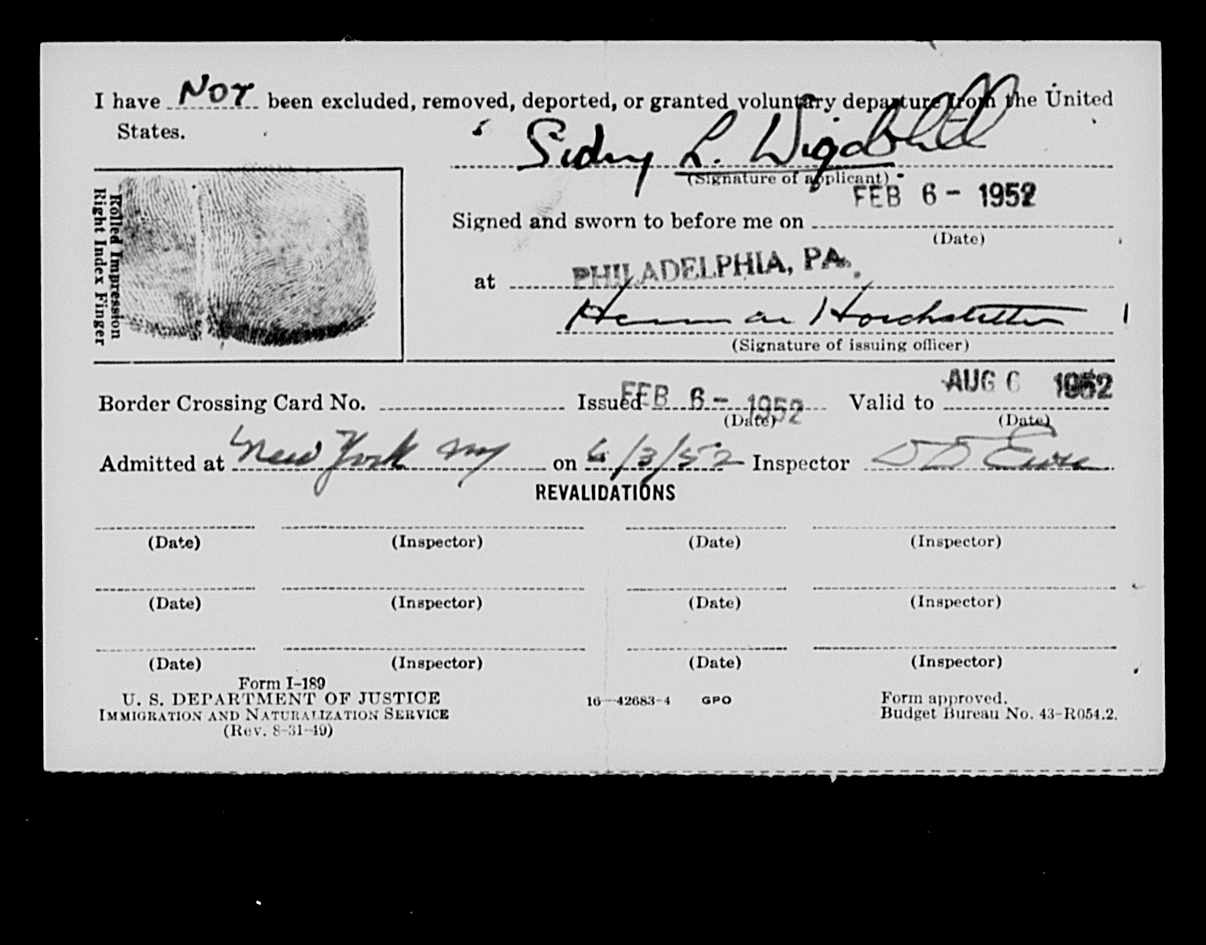 I have NOT been excluded, removed, deported, or granted voluntary departure from the United
States.
Sidney L.
(Signature of applicant)
Rolled Impression
Right Index Finger
FEB 6 - 1952
Signed and sworn to before me on
(Date)
at PHILADELPHIA, PA.
Herman
(Signature of issuing officer)
Border Crossing Card No. Issued FEB 6 - 1952 Valid to AUG 6 1952
(Date) (Date)
Admitted at New York NY on 6/3/52 Inspector
REVALIDATIONS
(Date) (Inspector) (Date) (Inspector)
(Date) (Inspector) (Date) (Inspector)
(Date) (Inspector) (Date) (Inspector)
Form I-189
U. S. DEPARTMENT OF JUSTICE 16—42683-4 GPO Form approved.
IMMIGRATION AND NATURALIZATION SERVICE Budget Bureau No. 43-R054.2.
(Rev. 8-31-49)